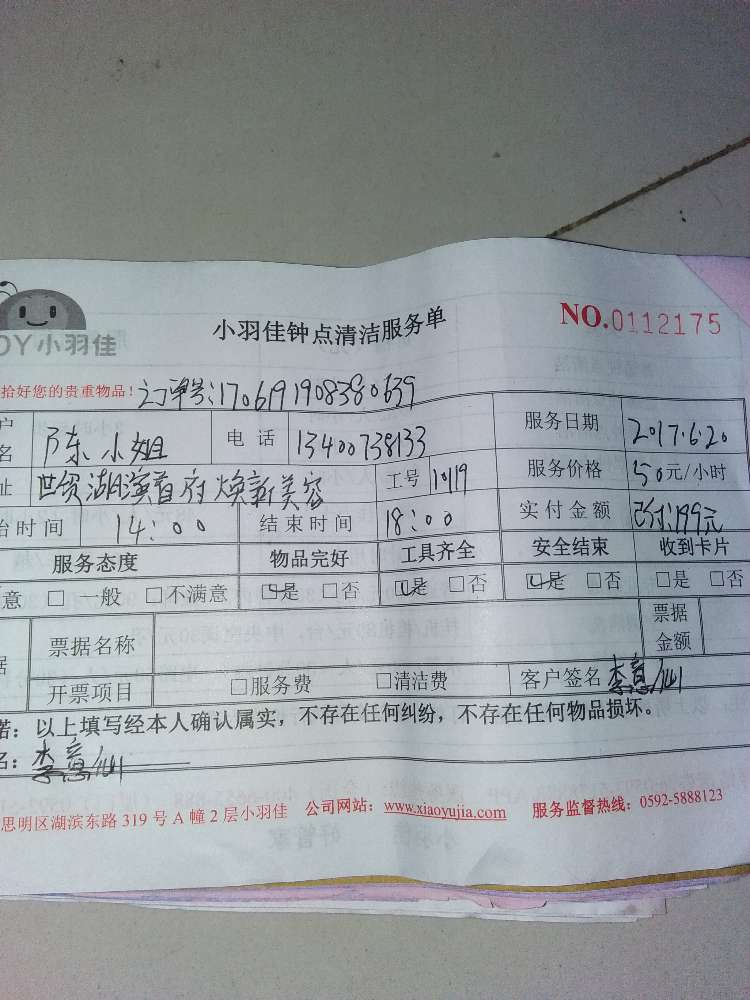 小羽佳钟点清洁服务单 NO.0112175
OY小羽佳
拾好您的贵重物品! 订单号:1706191908380639
户 名 陈小姐 电话 13400738133 服务日期 2017.6.20
址 世贸湖滨首府焕新美容 工号 10119 服务价格 50元/小时
始时间 14:00 结束时间 18:00 实付金额 已付:199元
服务态度 物品完好 工具齐全 安全结束 收到卡片
意 □一般 □不满意 ☑是 □否 ☑是 □否 ☑是 □否 □是 □否
据 票据名称 票据金额
开票项目 □服务费 □清洁费 客户签名 李意仙
诺:以上填写经本人确认属实,不存在任何纠纷,不存在任何物品损坏。
名:李意仙
思明区湖滨东路319号A幢2层小羽佳 公司网站:www.xiaoyujia.com 服务监督热线:0592-5888123